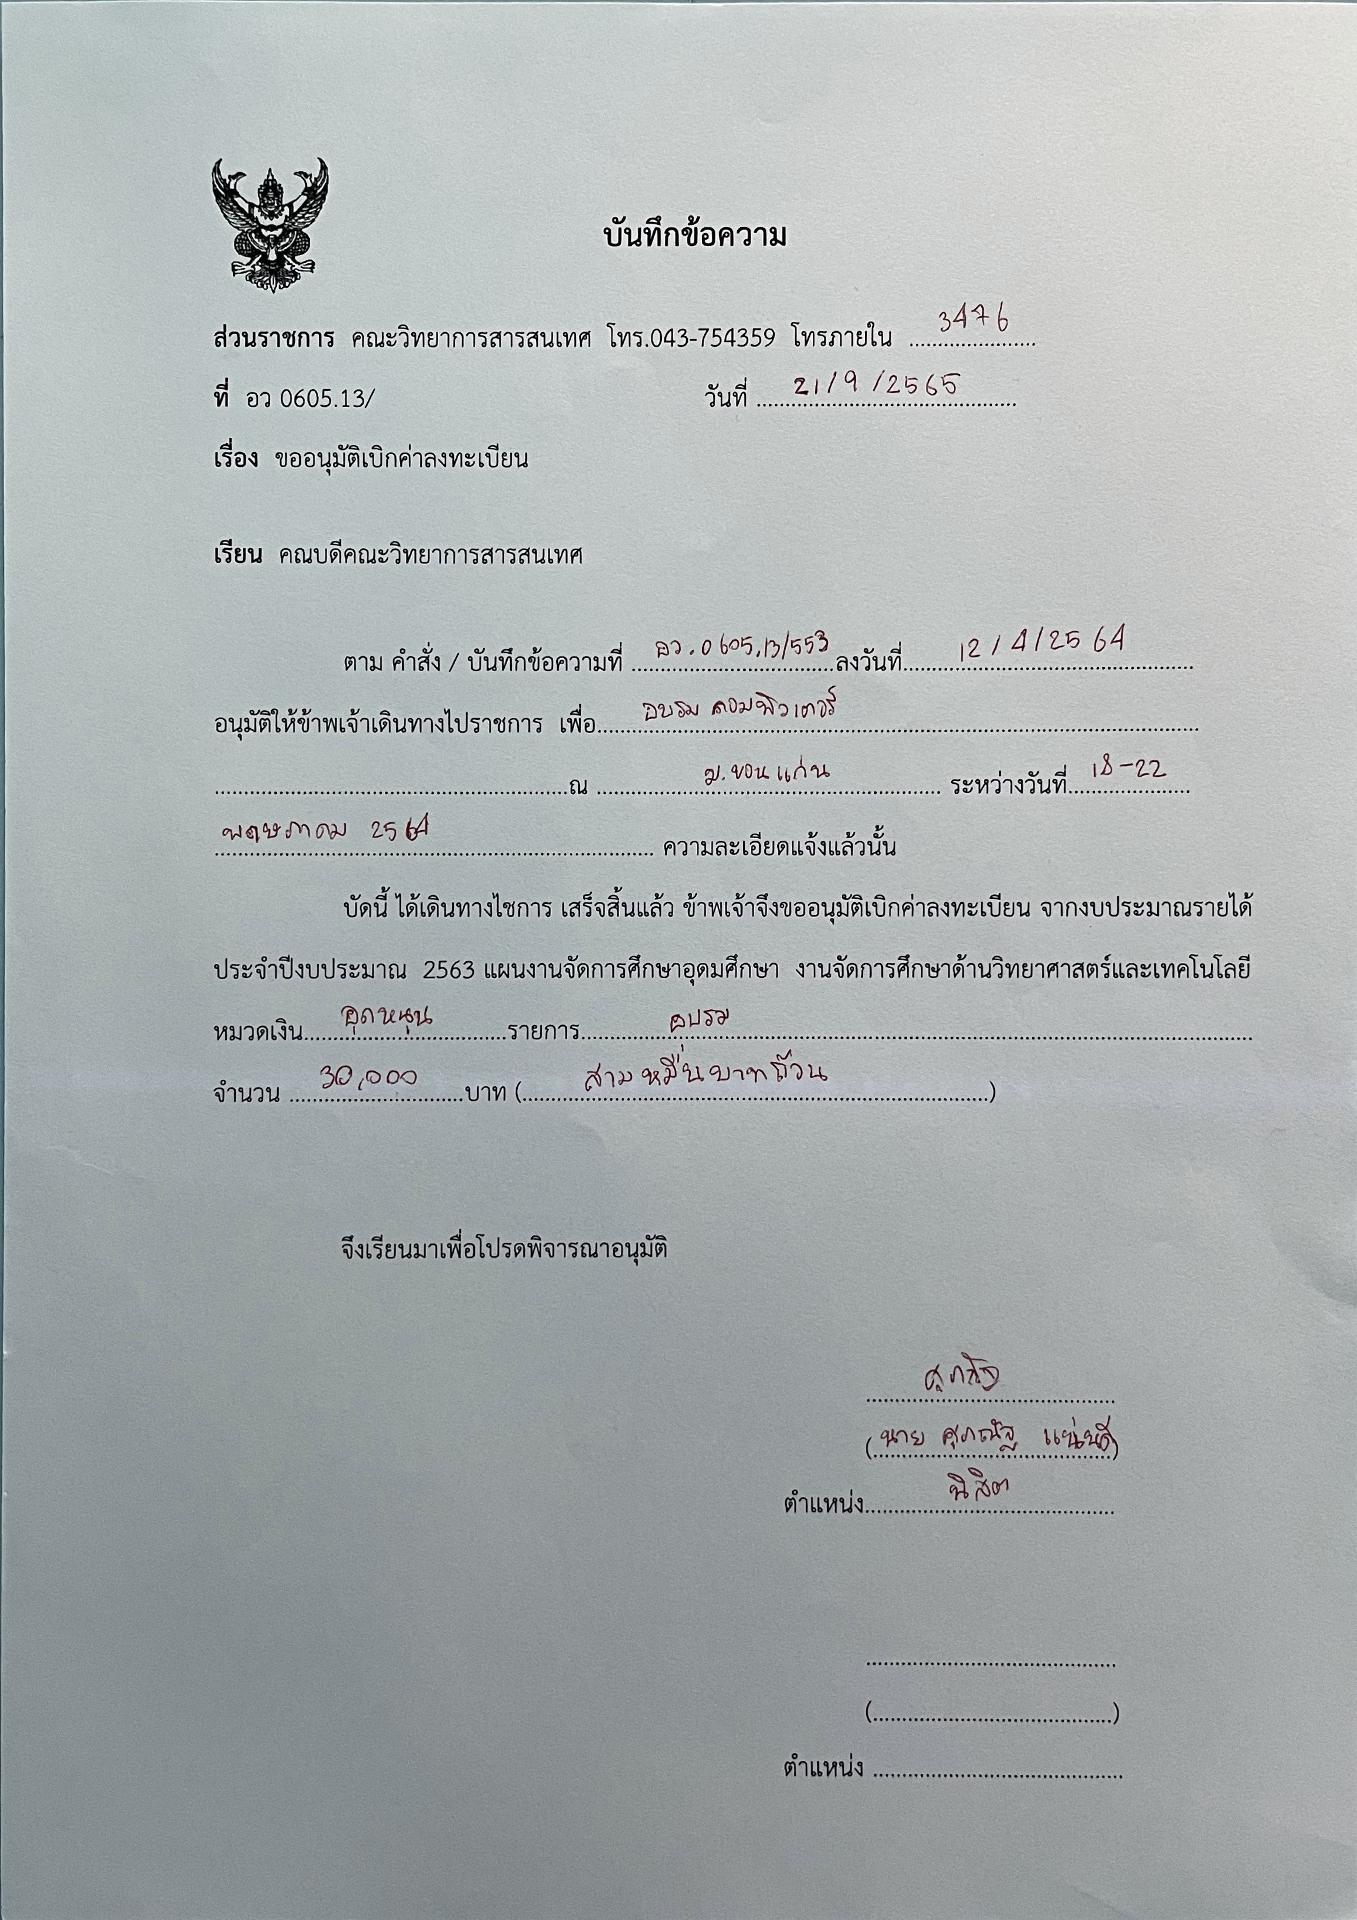 บันทึกข้อความ
ส่วนราชการ คณะวิทยาการสารสนเทศ โทร.043-754359 โทรภายใน 3476
ที่ อว 0605.13/ วันที่ 21/9/2565
เรื่อง ขออนุมัติเบิกค่าลงทะเบียน
เรียน คณบดีคณะวิทยาการสารสนเทศ
ตาม คำสั่ง / บันทึกข้อความที่ อว.0605.13/553 ลงวันที่ 12/4/2564
อนุมัติให้ข้าพเจ้าเดินทางไปราชการ เพื่อ อบรม คอมพิวเตอร์
ณ ม.ขอนแก่น ระหว่างวันที่ 18-22
พฤษภาคม 2564 ความละเอียดแจ้งแล้วนั้น
บัดนี้ ได้เดินทางไชการ เสร็จสิ้นแล้ว ข้าพเจ้าจึงขออนุมัติเบิกค่าลงทะเบียน จากงบประมาณรายได้
ประจำปีงบประมาณ 2563 แผนงานจัดการศึกษาอุดมศึกษา งานจัดการศึกษาด้านวิทยาศาสตร์และเทคโนโลยี
หมวดเงิน อุดหนุน รายการ อบรม
จำนวน 30,000 บาท ( สามหมื่นบาทถ้วน )
จึงเรียนมาเพื่อโปรดพิจารณาอนุมัติ
(นาย ศุภณัฐ )
ตำแหน่ง นิสิต
( )
ตำแหน่ง